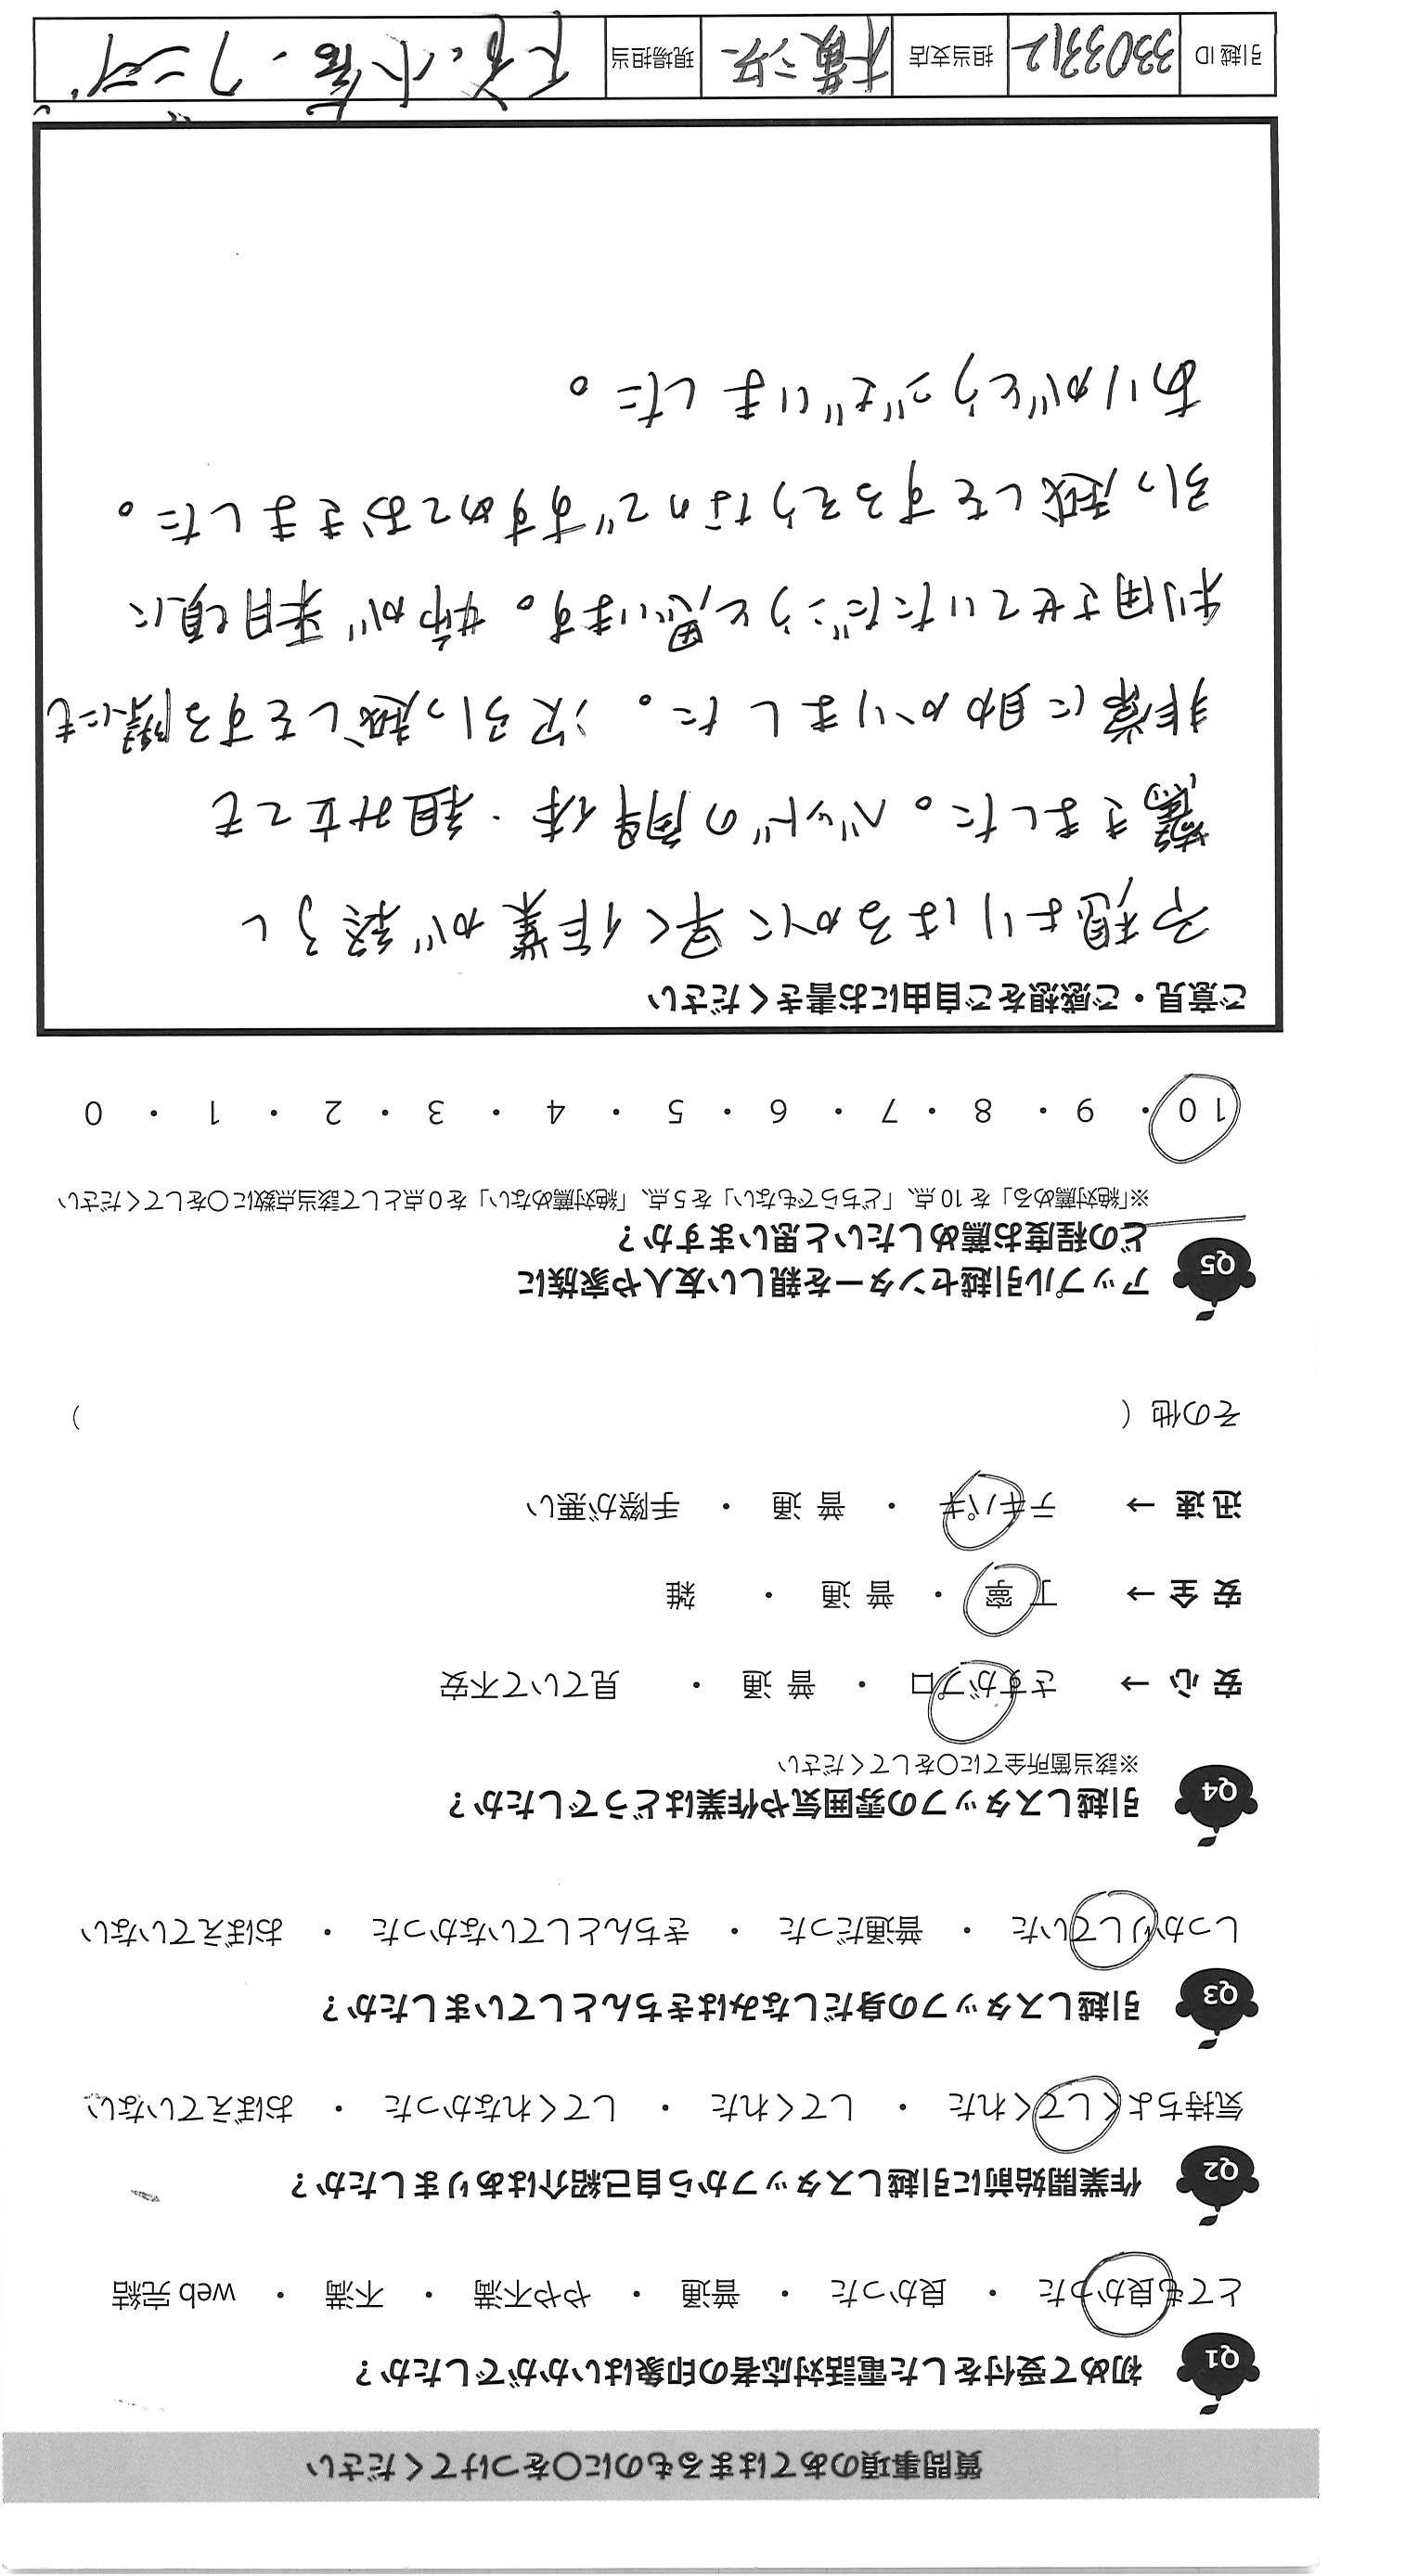 質問事項のあてはまるものに○をつけてください
Q1 初めて受付をした電話対応者の印象はいかがでしたか？
とても良かった ・ 良かった ・ 普通 ・ やや不満 ・ 不満 ・ web 完結
Q2 作業開始前に引越しスタッフから自己紹介はありましたか？
気持ちよくしてくれた ・ してくれた ・ してくれなかった ・ おぼえていない
Q3 引越しスタッフの身だしなみはきちんとしていましたか？
しっかりしていた ・ 普通だった ・ きちんとしていなかった ・ おぼえていない
Q4 引越しスタッフの雰囲気や作業はどうでしたか？
※該当箇所全てに○をしてください
安 心 → さすがプロ ・ 普 通 ・ 見ていて不安
安 全 → 丁 寧 ・ 普 通 ・ 雑
迅 速 → テキパキ ・ 普 通 ・ 手際が悪い
その他（ ）
Q5 アップル引越センターを親しい友人や家族に
どの程度お薦めしたいと思いますか？
※「絶対薦める」を 10 点、「どちらでもない」を 5 点、「絶対薦めない」を 0 点として該当点数に○をしてください
10 ・ 9 ・ 8 ・ 7 ・ 6 ・ 5 ・ 4 ・ 3 ・ 2 ・ 1 ・ 0
ご意見・ご感想をご自由にお書きください
予想よりはるかに早く作業が終了し
驚きました。ベッドの解体・組み立ても
非常に助かりました。次引っ越しをする際にも
利用させていただこうと思います。姉が来月頃に
引っ越しをするそうなのですすめておきました。
ありがとうございました。
引越 ID 3303312 担当支店 横浜 現場担当